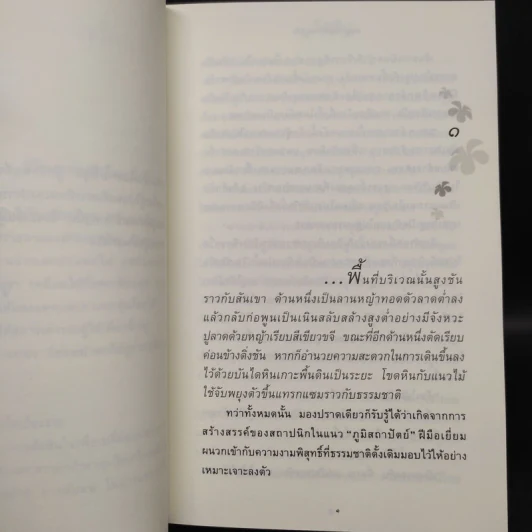 ๑
...พื้นที่บริเวณนั้นสูงชัน
ราวกับสันเขา ด้านหนึ่งเป็นลานหญ้าทอดตัวลาดต่ำลง
แล้วกลับก่อพูนเป็นเนินสลับสล้างสูงต่ำอย่างมีจังหวะ
ปูลาดด้วยหญ้าเรียบสีเขียวขจี ขณะที่อีกด้านหนึ่งตัดเรียบ
ค่อนข้างดิ่งชัน หากก็อำนวยความสะดวกในการเดินขึ้นลง
ไว้ด้วยบันไดหินเกาะพื้นดินเป็นระยะ โขดหินกับแนวไม้
ใช้จับพยุงตัวขึ้นแทรกแซมราวกับธรรมชาติ
ทว่าทั้งหมดนั้น มองปราดเดียวก็รับรู้ได้ว่าเกิดจากการ
สร้างสรรค์ของสถาปนิกในแนว "ภูมิสถาปัตย์" ฝีมือเยี่ยม
ผนวกเข้ากับความงามพิสุทธิ์ที่ธรรมชาติดั้งเดิมมอบไว้ให้อย่าง
เหมาะเจาะลงตัว